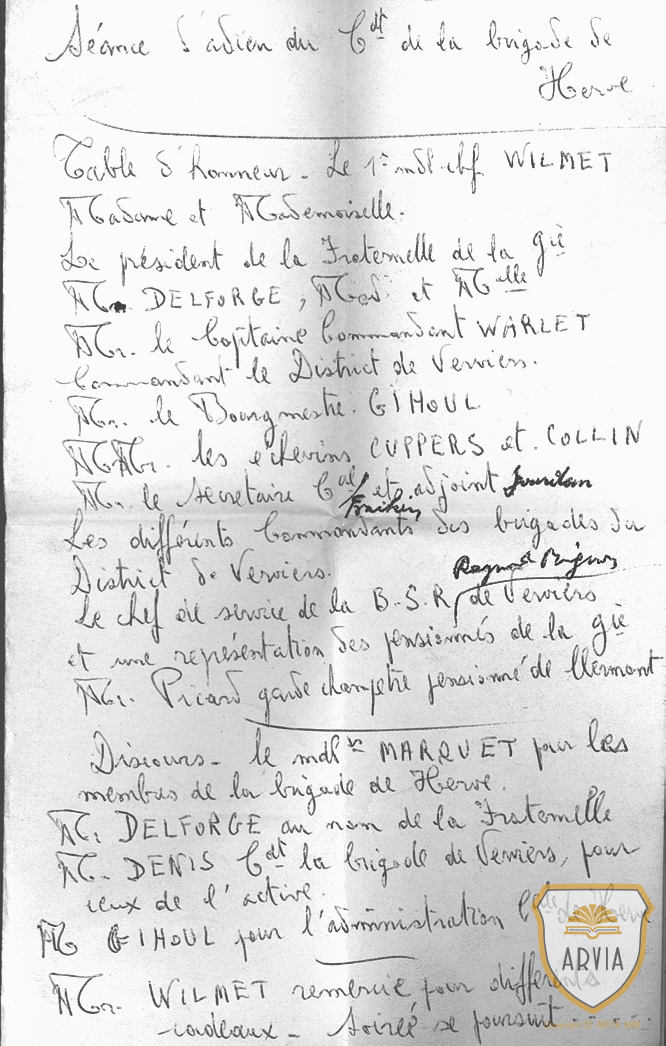 Séance d'adieu du Cdt de la brigade de
Herve
Table d'honneur - Le 1er mdl-chf WILMET
Madame et Mademoiselle.
Le président de la Fraternelle de la gie
Mr. DELFORGE, Mad. et Melle
Mr. le Capitaine Commandant WARLET
Commandant le District de Verviers.
Mr. le Bourgmestre. GIHOUL
MMr. les echevins CUPPERS et. COLLIN
Mr. le secretaire Cal et adjoint
Les différents Commandants des brigades du
District de Verviers.
Le chef de service de la B.S.R de Verviers
et une représentation des pensionnés de la gie
Mr. Picard garde champêtre pensionné de Clermont
Discours - le mdl MARQUET pour les
membres de la brigade de Herve.
Mr DELFORGE au nom de la Fraternelle
Mr. DENIS Cdt la brigade de Verviers, pour
ceux de l'active.
M GIHOUL pour l'administration Cale de Herve
Mr. WILMET remercie pour différents
cadeaux - Soirée se poursuit .....
ARVIA